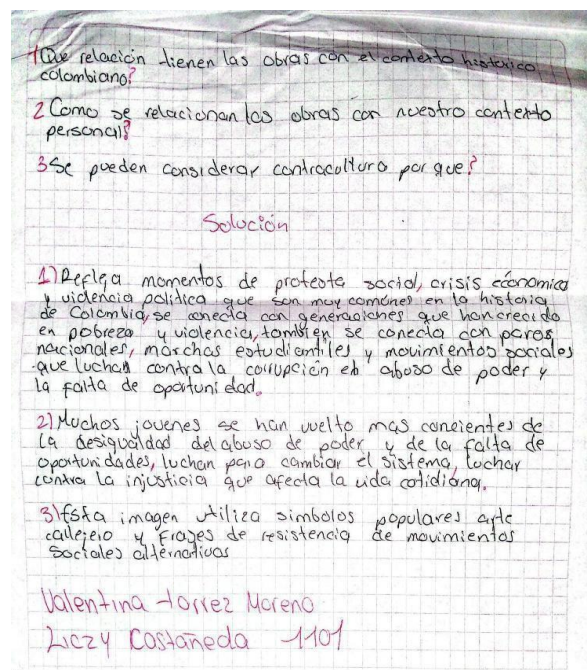 1 Que relación tienen las obras con el contexto historico
colombiano?
2 Como se relacionan las obras con nuestro contexto
personal?
3 Se pueden considerar contracultura por que?
Solución
1) Refleja momentos de protesta social, crisis económica
y violencia politica que son muy comúnes en la historia
de Colombia, se conecta con generaciones que han crecido
en pobreza y violencia, tambien se conecta con paros
nacionales, marchas estudiantiles y movimientos sociales
que luchan contra la corrupción en abuso de poder y
la falta de oportunidad.
2) Muchos jovenes se han vuelto mas concientes de
la desigualdad del abuso de poder y de la falta de
oportunidades, luchan para cambiar el sistema, luchar
contra la injusticia que afecta la vida cotidiana.
3) Esta imagen utiliza simbolos populares arte
callejero y frases de resistencia de movimientos
sociales alternativos
Valentina torrez Moreno
Liczy Costañeda 1101